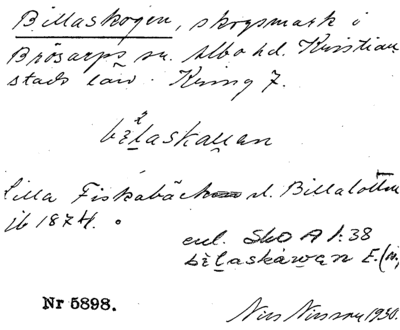 Billaskogen, skogsmark i
Brösarps sn. Albo hd. Kristian
stads län. Kung 7.
bèl̥askau̯an
Lilla Fiskabäck l. Billalotten
jb 1874.
enl. SkO A 1:38
bèl̥askàwan E.
Nr 5898.
Nils Nilsson 1930.